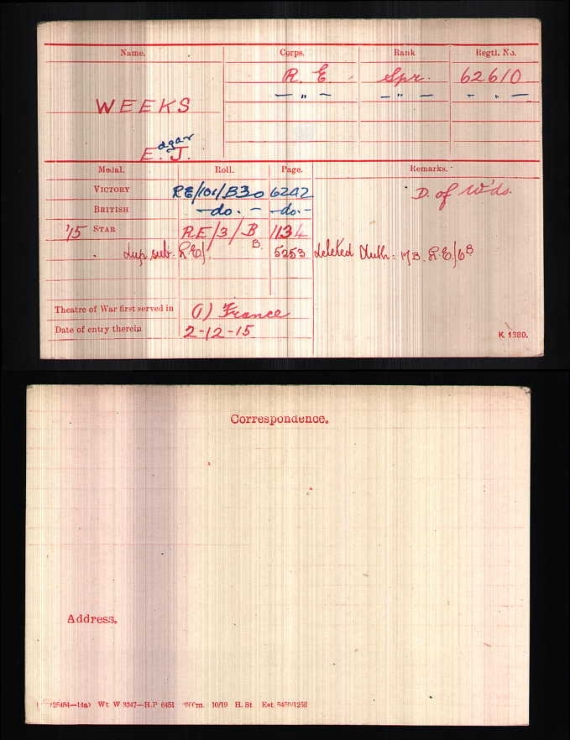 Name. Corps. Rank Regtl. No.
R. E. Spr. 62610
WEEKS — " — — " — - " -
Edgar J.
Medal. Roll. Page. Remarks.
VICTORY RE/101/B30 6242 D. of Wds.
BRITISH —do.— —do.—
'15 STAR RE/3/B 1134
dup. sub. R.E/ B. 5253 deleted Auth: RE/68
Theatre of War first served in (1) France
Date of entry therein 2-12-15
K 1380.
Correspondence.
Address.
Wt W 9347—H.P 6451 10/10 H. St. Est.